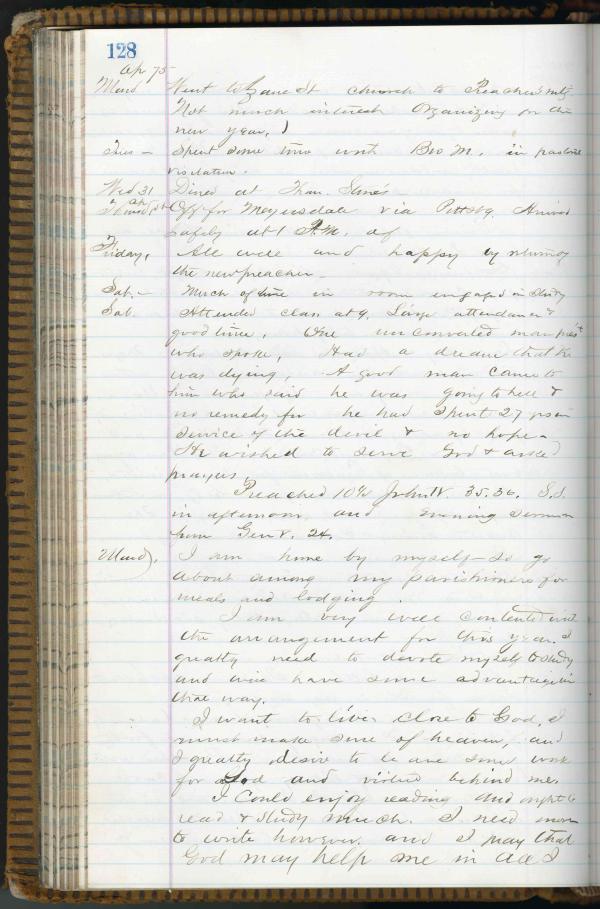 128
Ap 75
Mond Went to Zane St church to Preachers mtg
Not much interest Organizing for the
new year.)
Tues - Spent some time with Bro M. in pastoral
visitation.
Wed 31 Dined at Thau.
Ap Thurs 1st Off for Meyersdale via Pittsbg. Arrived
safely at 1 P.M. of
Friday, All well and happy by
the new preacher -
Sat. - Much of time in room engaged in study
Sab. Attended class at 9. Large attendance &
good time. One unconverted man pres't
who spoke, Had a dream that he
was dying. A good man came to
him who said he was going to hell &
no remedy for he had spent 27 yrs in
service of the devil & no hope -
He wished to serve God & asked
prayers
Preached 10½ John IV. 35.36. S.S.
in afternoon, and evening sermon
from Gen V. 24.
Mond. I am home by myself - so go
about among my parishioners for
meals and lodging.
I am very well contented with
the arrangement for this year. I
greatly need to devote myself to study
and will have some advantage in
that way.
I want to live close to God, I
must make sure of heaven, and
I greatly desire to leave some work
for God and virtue behind me.
I could enjoy reading and ought to
read & study much. I need more
to write however. and I pray that
God may help me in all I